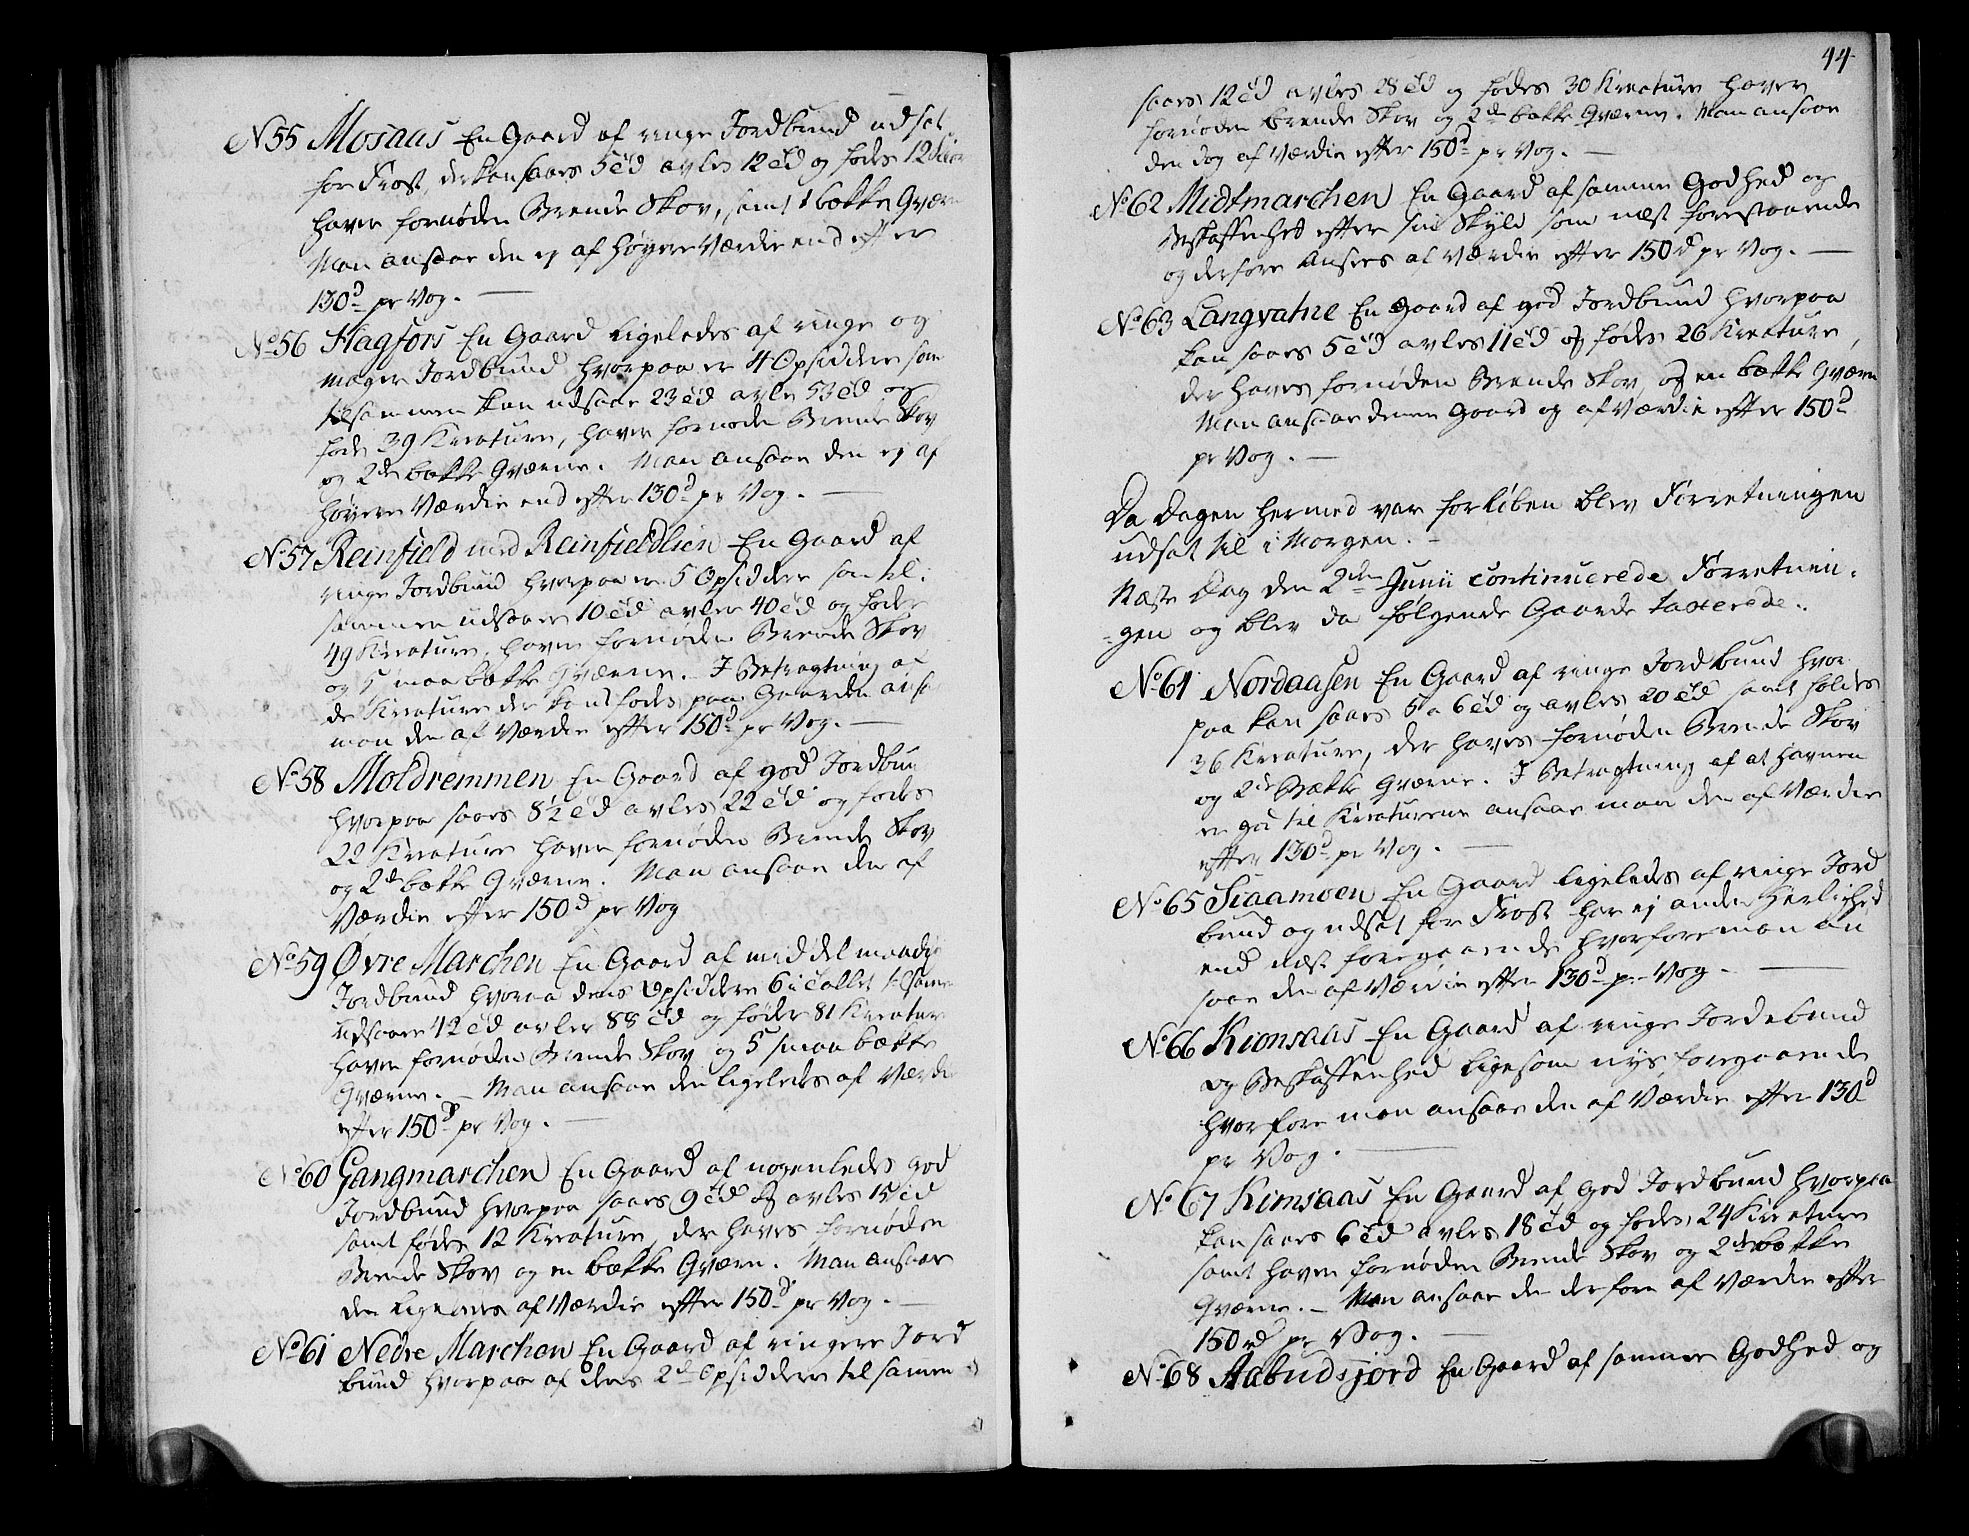 No 55 Mosaas En Gaard af ringe Jordbund udsat
for Frost, der kan saaes 5 td avles 12 td og fødes 12
haver fornøden Brende Skov, samt 1 bække Qværn
Man ansaae den ej af høyere Værdie end efter
130 d pr Vog.
No 56 Hagfors En Gaard ligeledes af ringe og
mager Jordbund hvorpaa er 4 Opsiddere som
tilsammen kan udsaae 23 td avle 53 td og
føde 39 Kreature, haver fornøden Brende Skov
og 2de bække Qværne. Man ansaae den ej af
høyere Værdie end efter 130 d pr Vog.
No 57 Reinfield med Reinfieldlien En Gaard af
ringe Jordbund hvorpaa er 5 Opsiddere som til-
sammen udsaaer 10 td avler 40 td og føder
49 Kreature, haver fornøden Brende Skov
og 5 smaa bække Qværne. I Betragtning af
de Kreature der kand fødes paa Gaarden ansaae
man den af Værdie efter 150 d pr Vog.
No 58 Moldremmen En Gaard af god Jordbund
hvorpaa saaes 8½ td avles 22 td og fødes
22 Kreature haver fornøden Brende Skov
og 2de bække Qværne. Man ansaae den af
Værdie efter 150 d pr Vog
No 59 Øvre Marchen En Gaard af middelmaadig
Jordbund hvoraa dens Opsiddere 6 i tallet tilsamen
udsaaer 42 td avler 88 td og føder 81 Kreature
haver fornøden Brende Skov og 5 smaa bække
Qværne. – Man ansaae den ligeledes af Værdie
efter 150 d pr Vog.
No 60 Gangmarchen En Gaard af nogenledes god
Jordbund hvorpaa saaes 9 td og avles 15 td
samt fødes 12 Kreature, der haves fornøden
Brende Skov og en bække Qværn. Man ansaae
den ligeledes af Værdie efter 150 d pr Vog.
No 61 Nedre Marchen En Gaard af ringere Jord
bund hvorpaa af dens 2de Opsiddere tilsamen
44
saaes 12 td avles 28 td og fødes 30 Kreature haver
fornøden Brende Skov og 2de bække Qværne. Man ansaae
den dog af Værdie efter 150 d pr Vog.
No 62 Midtmarchen En Gaard af samme Godhed og
Beskaffenhed efter sin Skyld som næst forestaaende
og derfore Ansees af Værdie efter 150 rd pr Vog.
No 63 Langvatne En Gaard af god Jordbund hvorpaa
kan saaes 5 td avles 11 td og fødes 26 Kreature,
der haves fornøden Brende Skov og en bække Qværn
Man ansaae denne Gaard og af Værdie efter 150 d
pr Vog.
Da Dagen hermed var forløben blev Forretningen
udsat til i Morgen.
Næste Dag den 2den Junii continuerede Forretnin-
gen og blev da følgende Gaarde taxerede.
No 64 Nordaasen En Gaard af ringe Jordbund hvor
paa kan saaes 5 a 6 td og avles 20 td samt holdes
26 Kreature, der haves fornøden Brende Skov
og 2de Bække Qværne. I Betragtning af at havnen
er god til Kreaturene ansaae man den af Værdie
efter 130 d pr Vog.
No 65 Siaamoen En Gaard ligeledes af ringe Jord
bund og udsat for Frost har ej anden Herlighed
end næst foregaaende hvorfore man an
saae den af Værdie efter 130 d pr Vog.
No 66 Kionsaas En Gaard af ringe Jordebund
og Beskaffenhed ligesom nys foregaaende
hvorfore man ansaae den af Værdie efter 130 d
pr Vog.
No 67 Kimsaas En Gaard af god Jordbund hvorpaa
kan saaes 6 td avles 18 td og fødes 24 Kreature
samt haver fornøden Brende Skov og 2de bække
Qværne. – Man ansaae den derfore af Værdie efter
150 rd pr Vog.
No 68 Aabudsjord En Gaard af samme Godhed og